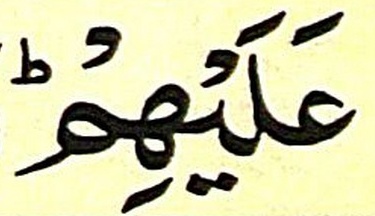 عَلَيْهِمْ ؕ